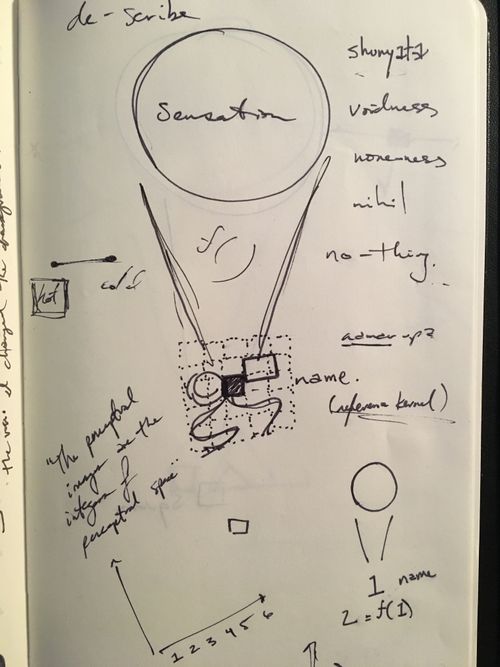 de-scribe
Sensation
shunyata
voidness
none-ness
nihil
no-thing.
f( )
hot
cold
name.
(reference kernel)
"The perceptual
images are the
integers of
perceptual space"
1 2 3 4 5 6
1 name
2 = f(1)